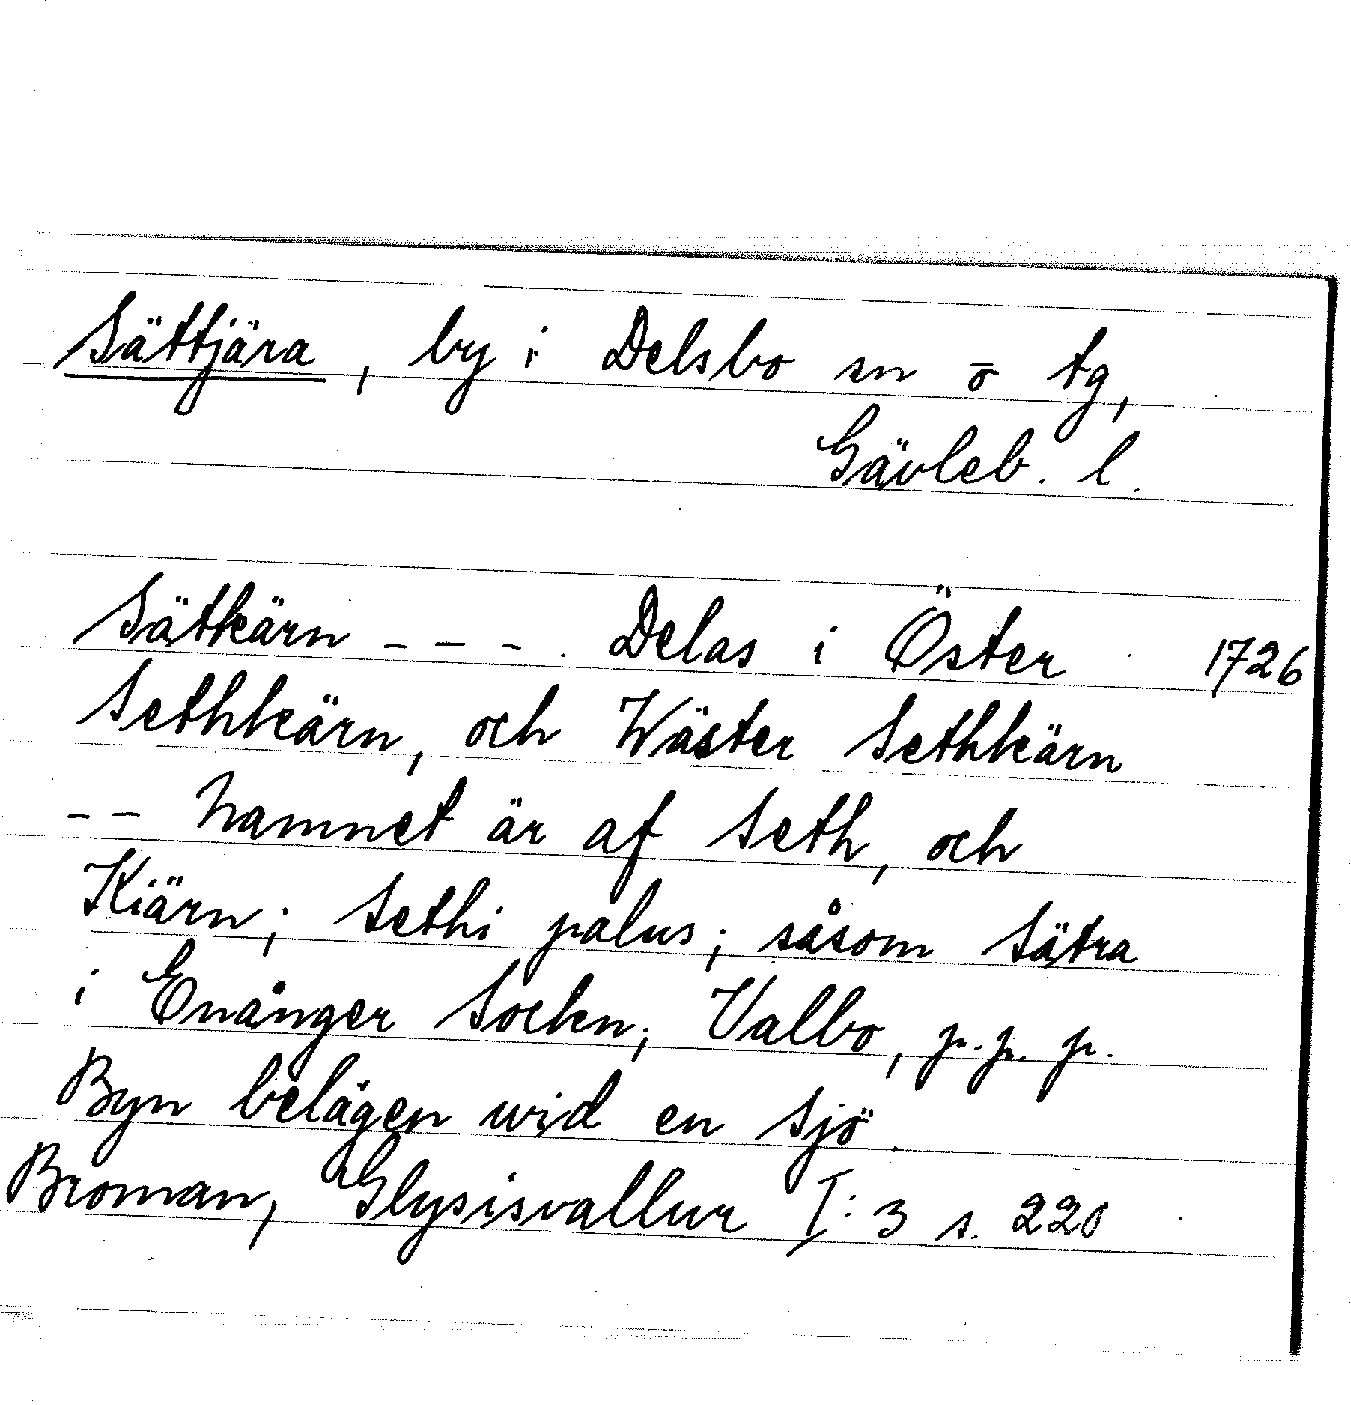 Sättjära, by i Delsbo sn o tg,
Gävleb. l.
Sätkärn - - - . Delas i Öster 1726
Sethkärn, och Wäster Sethkärn
- - Namnet är af Seth, och
Kiärn; Sethi palus; såsom Sätra
i Enånger Sockn; Valbo, p.p. p.
Byn belägen wid en sjö.
Broman, Glysisvallur I: 3 s. 220